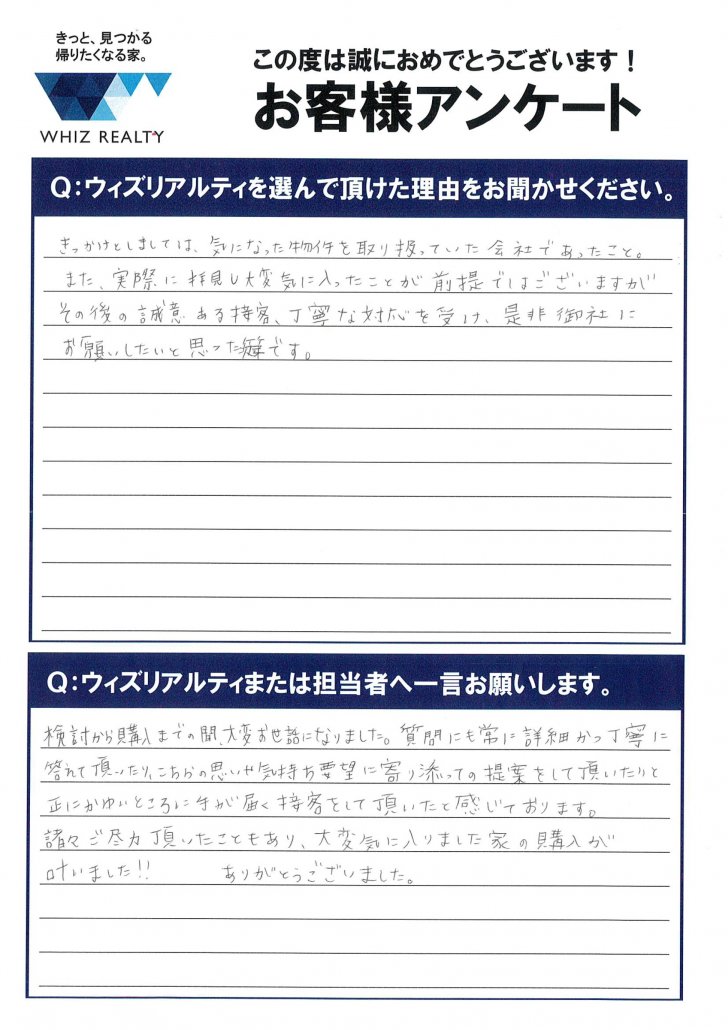 きっと、見つかる
帰りたくなる家。
WHIZ REALTY
この度は誠におめでとうございます！
お客様アンケート
Q：ウィズリアルティを選んで頂けた理由をお聞かせください。
きっかけとしましては、気になった物件を取り扱っていた会社であったこと。
また、実際に拝見し大変気に入ったことが前提ではございますが
その後の誠意ある接客、丁寧な対応を受け、是非御社に
お願いしたいと思った次第です。
Q：ウィズリアルティまたは担当者へ一言お願いします。
検討から購入までの間、大変お世話になりました。質問にも常に詳細かつ丁寧に
答えて頂いたり、こちらの思いや気持ち要望に寄り添っての提案をして頂いたりと
正にかゆいところに手が届く接客をして頂いたと感じております。
諸々ご尽力頂いたこともあり、大変気に入りました家の購入が
叶いました!! ありがとうございました。